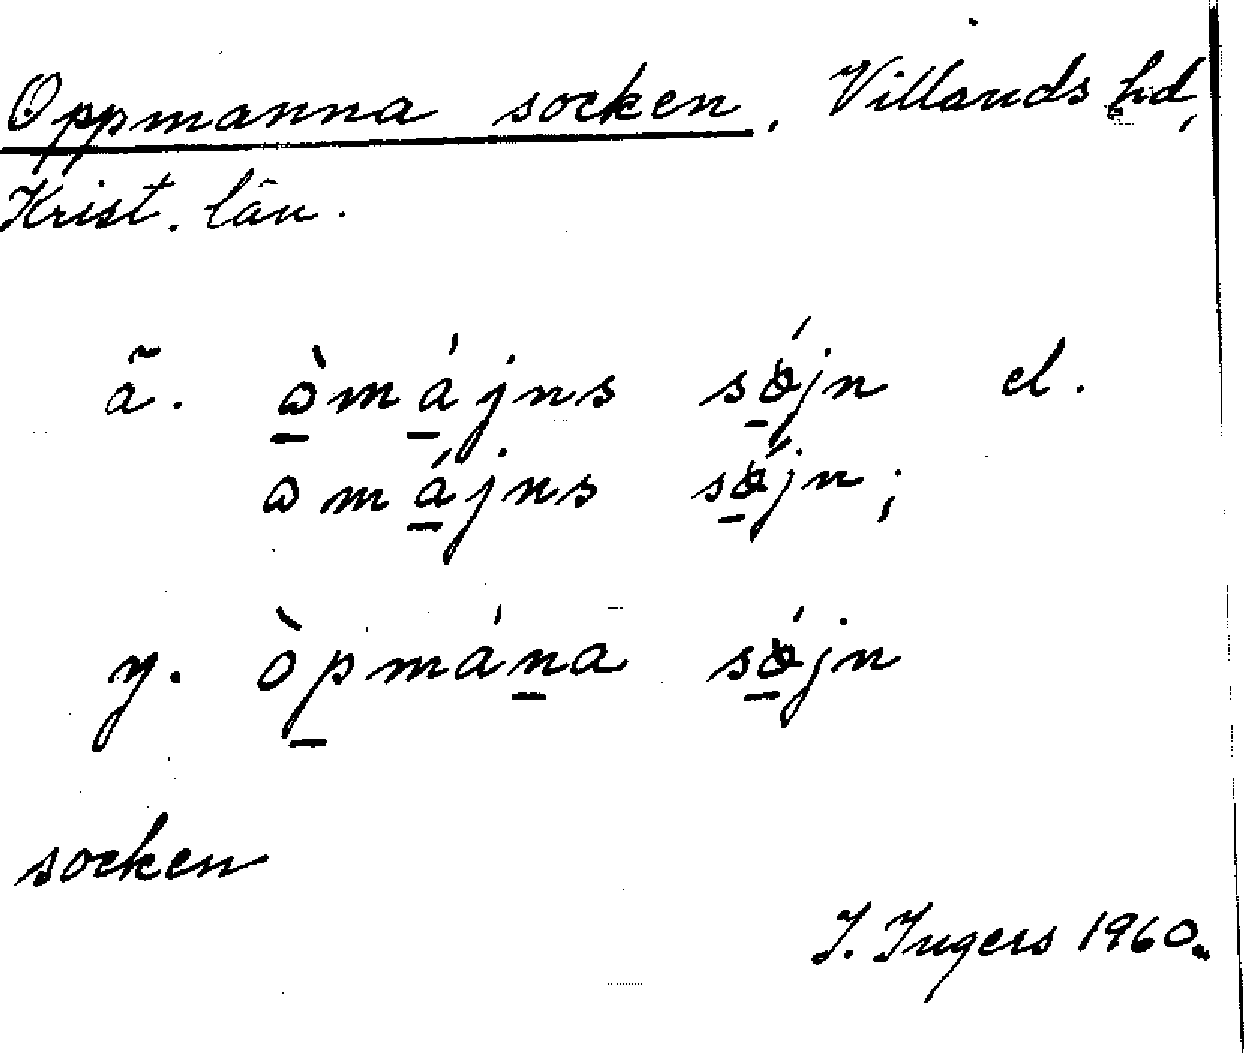 Oppmanna socken, Villands hd,
Krist. län.
ä. òmájns sójn el.
omájns sójn;
y. òpmána sójn
socken
I. Ingers 1960.